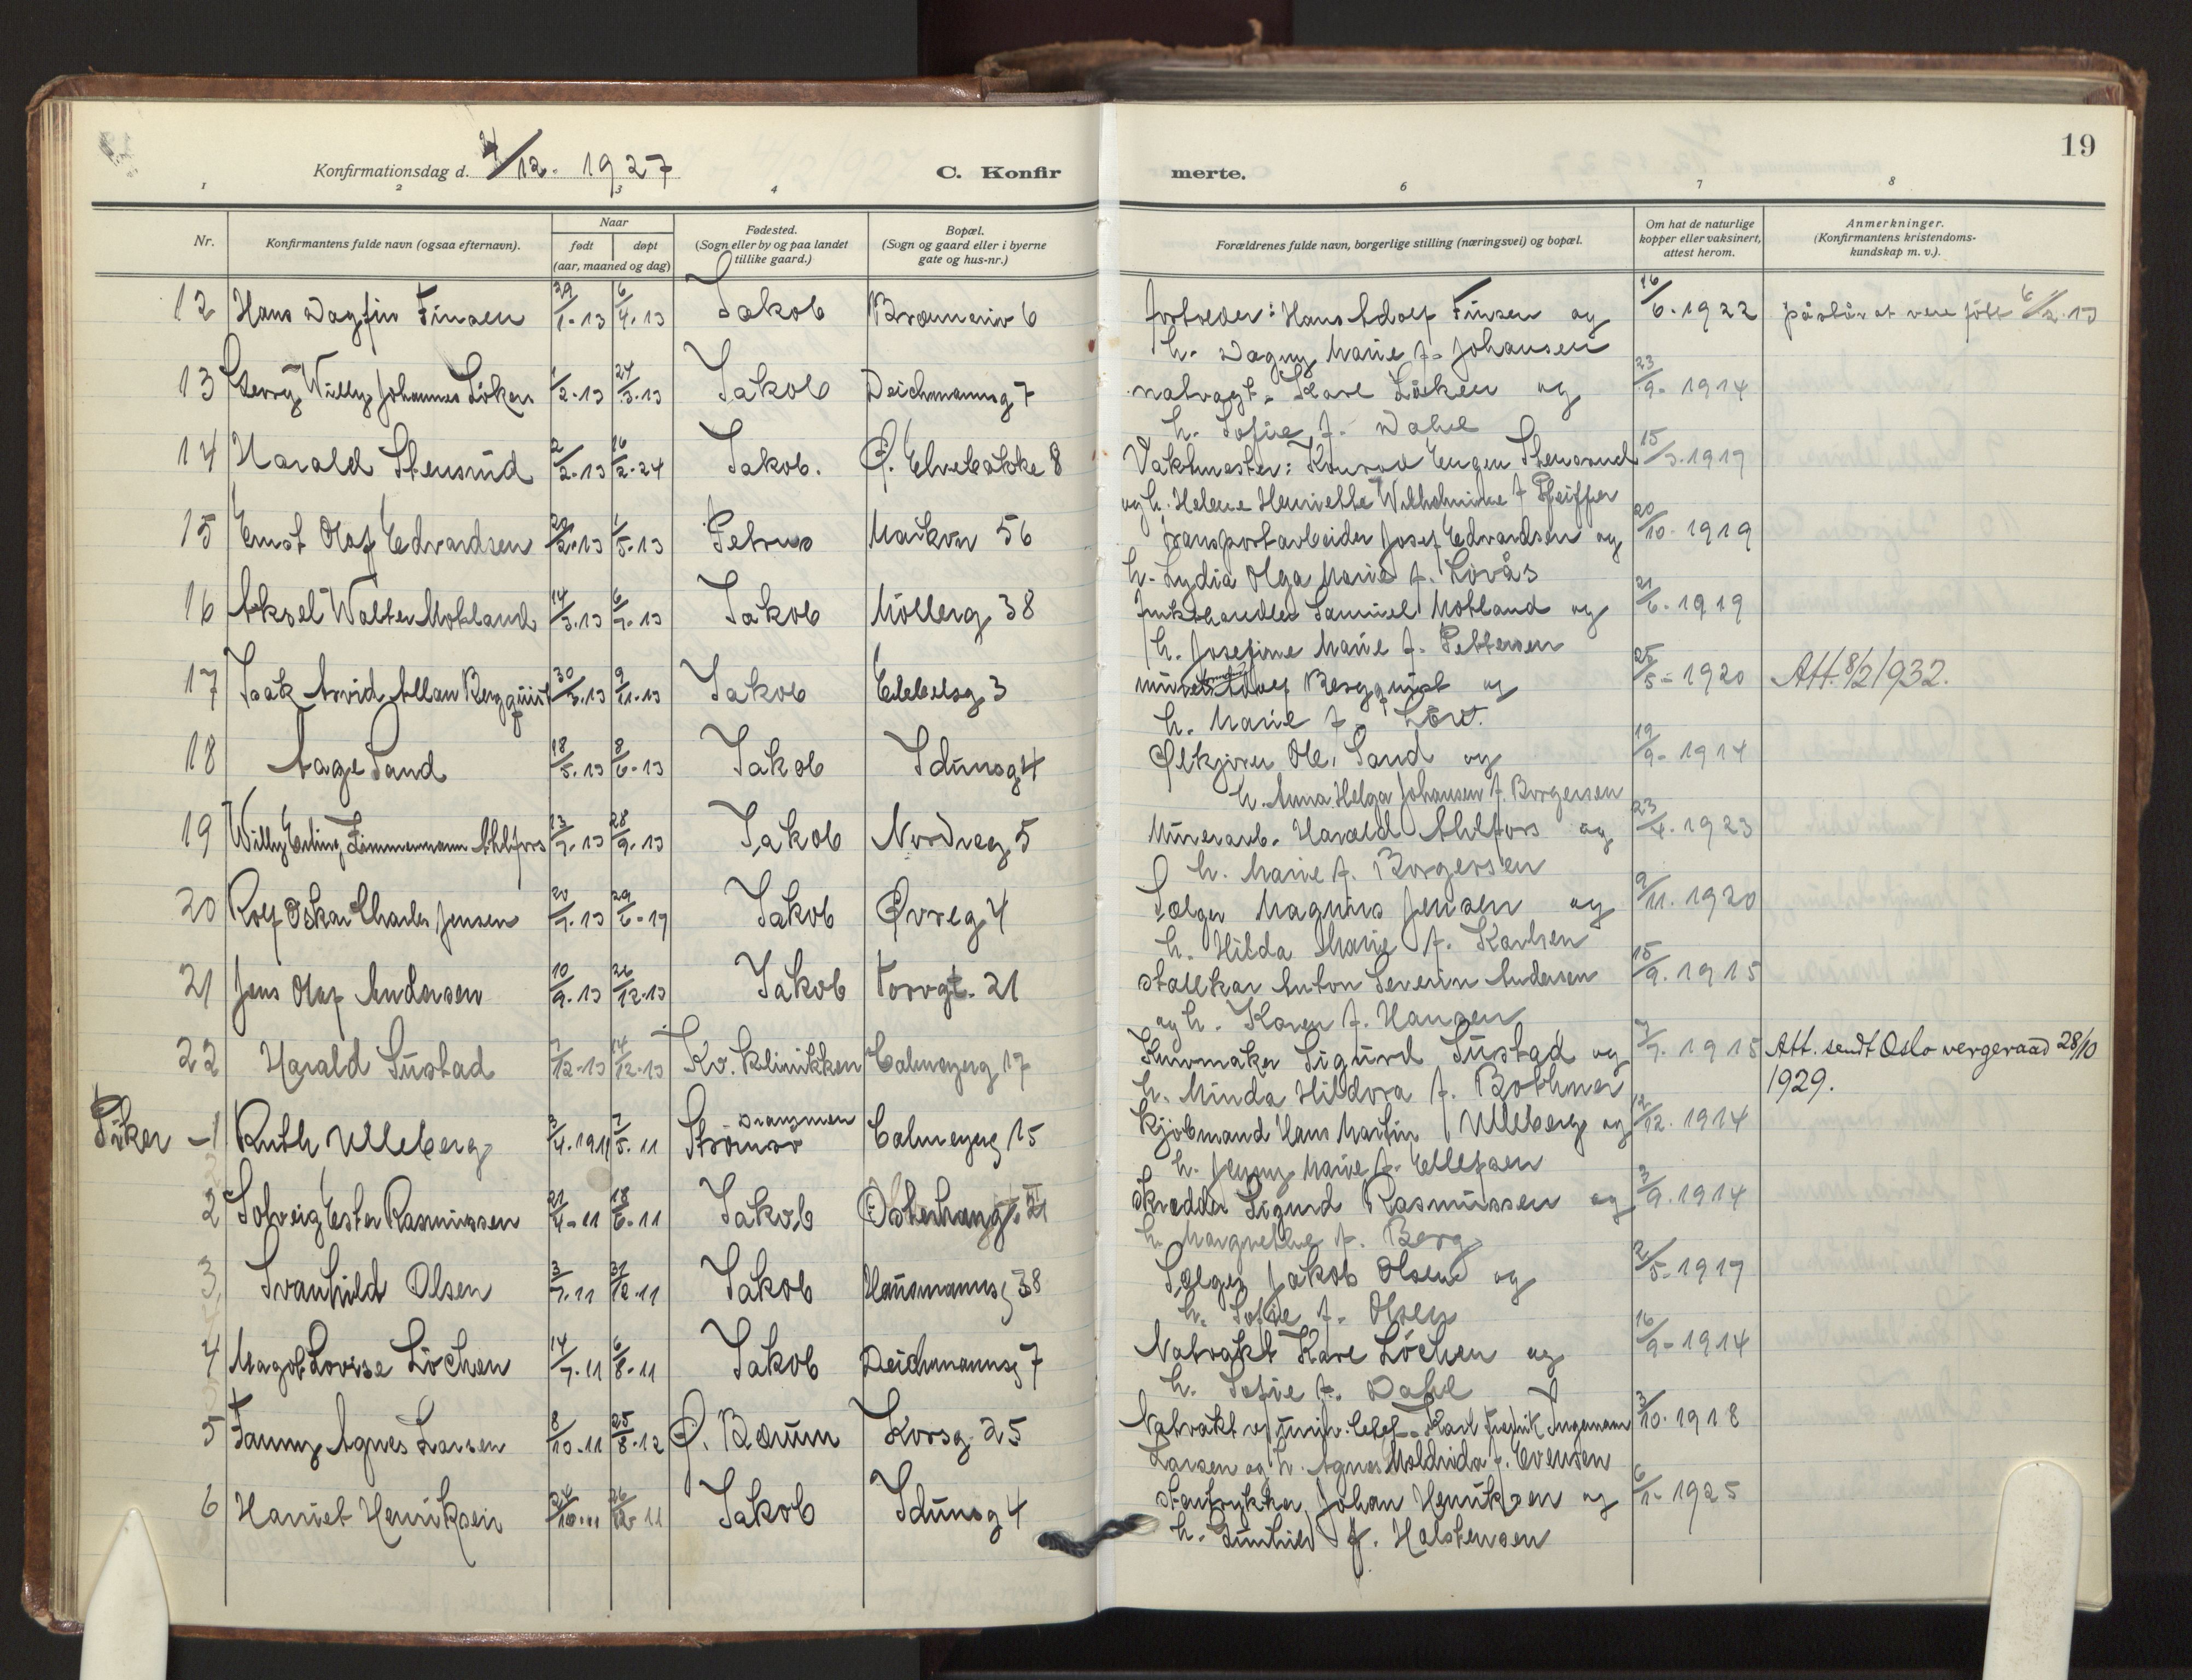 19
Konfirmationsdag d. 4/12. 1927
C. Konfir
merte.
1 2 3 4 6 7 8
Nr.
Konfirmantens fulde navn (ogsaa efternavn).
Naar
født døpt
(aar, maaned og dag)
Fødested.
(Sogn eller by og paa landet
tillike gaard.)
Bopæl.
(Sogn og gaard eller i byerne
gate og hus-nr.)
Forældrenes fulde navn, borgerlige stilling (næringsvei) og bopæl.
Om hat de naturlige
kopper eller vaksinert,
attest herom.
Anmerkninger.
(Konfirmantens kristendoms-
kundskap m. v.).
12 Hans Dagfin Finsen 29/1-13 6/4-13 Jakob 6 Hans Adolf Finsen og 16/6-1922 påstår at være født 6/2-13
h. Dagny Marie f. Johansen
13 Willy Johannes Löken 1/2-13 24/3-13 Jakob Deichmannsg 7 natvagt. Kare Löcken og 23/9-1914
h. Sofie f. Dahl
14 Harald Stensrud 2/2-13 16/2-24 Jakob. Ø. Elvebakke 8 Vaktmester: Konrad Eugen Stensrud 15/3-1917
og h. Helene Henriette Wilhelmine f Pfeiffer
15 Ernst Olaf Edvardsen 13 1/5-13 Petrus Markvn 56 transportarbeider Josef Edvardsen og 20/10-1919
h. Lydia Olga Marie f. Lövås
16 Aksel Walter Motland 14/3-13 6/7-13 Jakob Möllerg 38 frukthandler Samuel Motland og 21/6-1919
h. Josefine Marie f. Pettersen
17 Isak Arvid Allan Bergquist 30/3-13 9/11-13 Jakob Ebbelsg 3 Bergquist og 25/5-1920 Att. 8/2 1932.
h. Marie f.
18 Aage Sand 18/5-13 8/6-13 Jakob Idunsg 4 Ölkjörer Ole Sand og 19/9-1914
h. Anna Helga Johansen f. Borgersen
19 Willy Erling Zimmermann Ahlfors 13/7-13 28/9-13 Jakob Nordreg 5 Murerarb. Harald Ahlfors og 23/4-1923
h. Marie f. Borgersen
20 Rolf Oskar Charles Jensen 20/7-13 29/6-19 Jakob Øvreg 4 Sælger Magnus Jensen og 9/11-1920
h. Hilda Marie f. Karlsen
21 Jens Olaf Andersen 10/9-13 26/12-13 Jakob Torvgt. 21 stallkar Anton Severin Andersen 15/9-1915
og h. Karen f. Hansen
22 Harald Sustad 7/12-13 14/12-13 Kv. klinikken Calmeyersg 17 Skomaker Sigurd Sustad og 7/7-1915 Att. sendt Oslo vergeraad 28/10
h. Minda Hildora f. Bothner 1929.
Piker -1 Ruth Ulleberg 3/4-1911 7/5-11 Strömsö Drammen Calmeyerg 15 Kjöbmand Hans Martin Ulleberg og 12/12-1914
h. Jenny Marie f. Ellefsen
2 Solveig Ester Rasmussen 21/4-11 18/6-11 Jakob Östehausgt. skrædder Sigurd Rasmussen og 3/9-1914
h. Margrethe f. Berg
3 Svanhild Olsen 3/7-11 31/12-11 Jakob Hausmannsg 38 Sælger Jakob Olsen og 2/5-1917
h. Sofie f. Olsen
4 Magot Lovise Löchen 14/7-11 6/8-11 Jakob Deichmannsg 7 Natvakt Kare Löchen og 16/9-1914
h. Sofie f. Dahl
5 Fanny Agnes Larsen 8/10-11 25/8-12 Ø. Bærum Korsg 25 Natvakt v/ Karl Fredrik Ingemann 3/10-1918
Larsen og h. Agnes f. Evensen
6 Harriet Henriksen 11 11 Jakob Idunsg 4 Stentrykker Johan Henriksen og 6/1-1925
h. Gunhild f. Halstensen